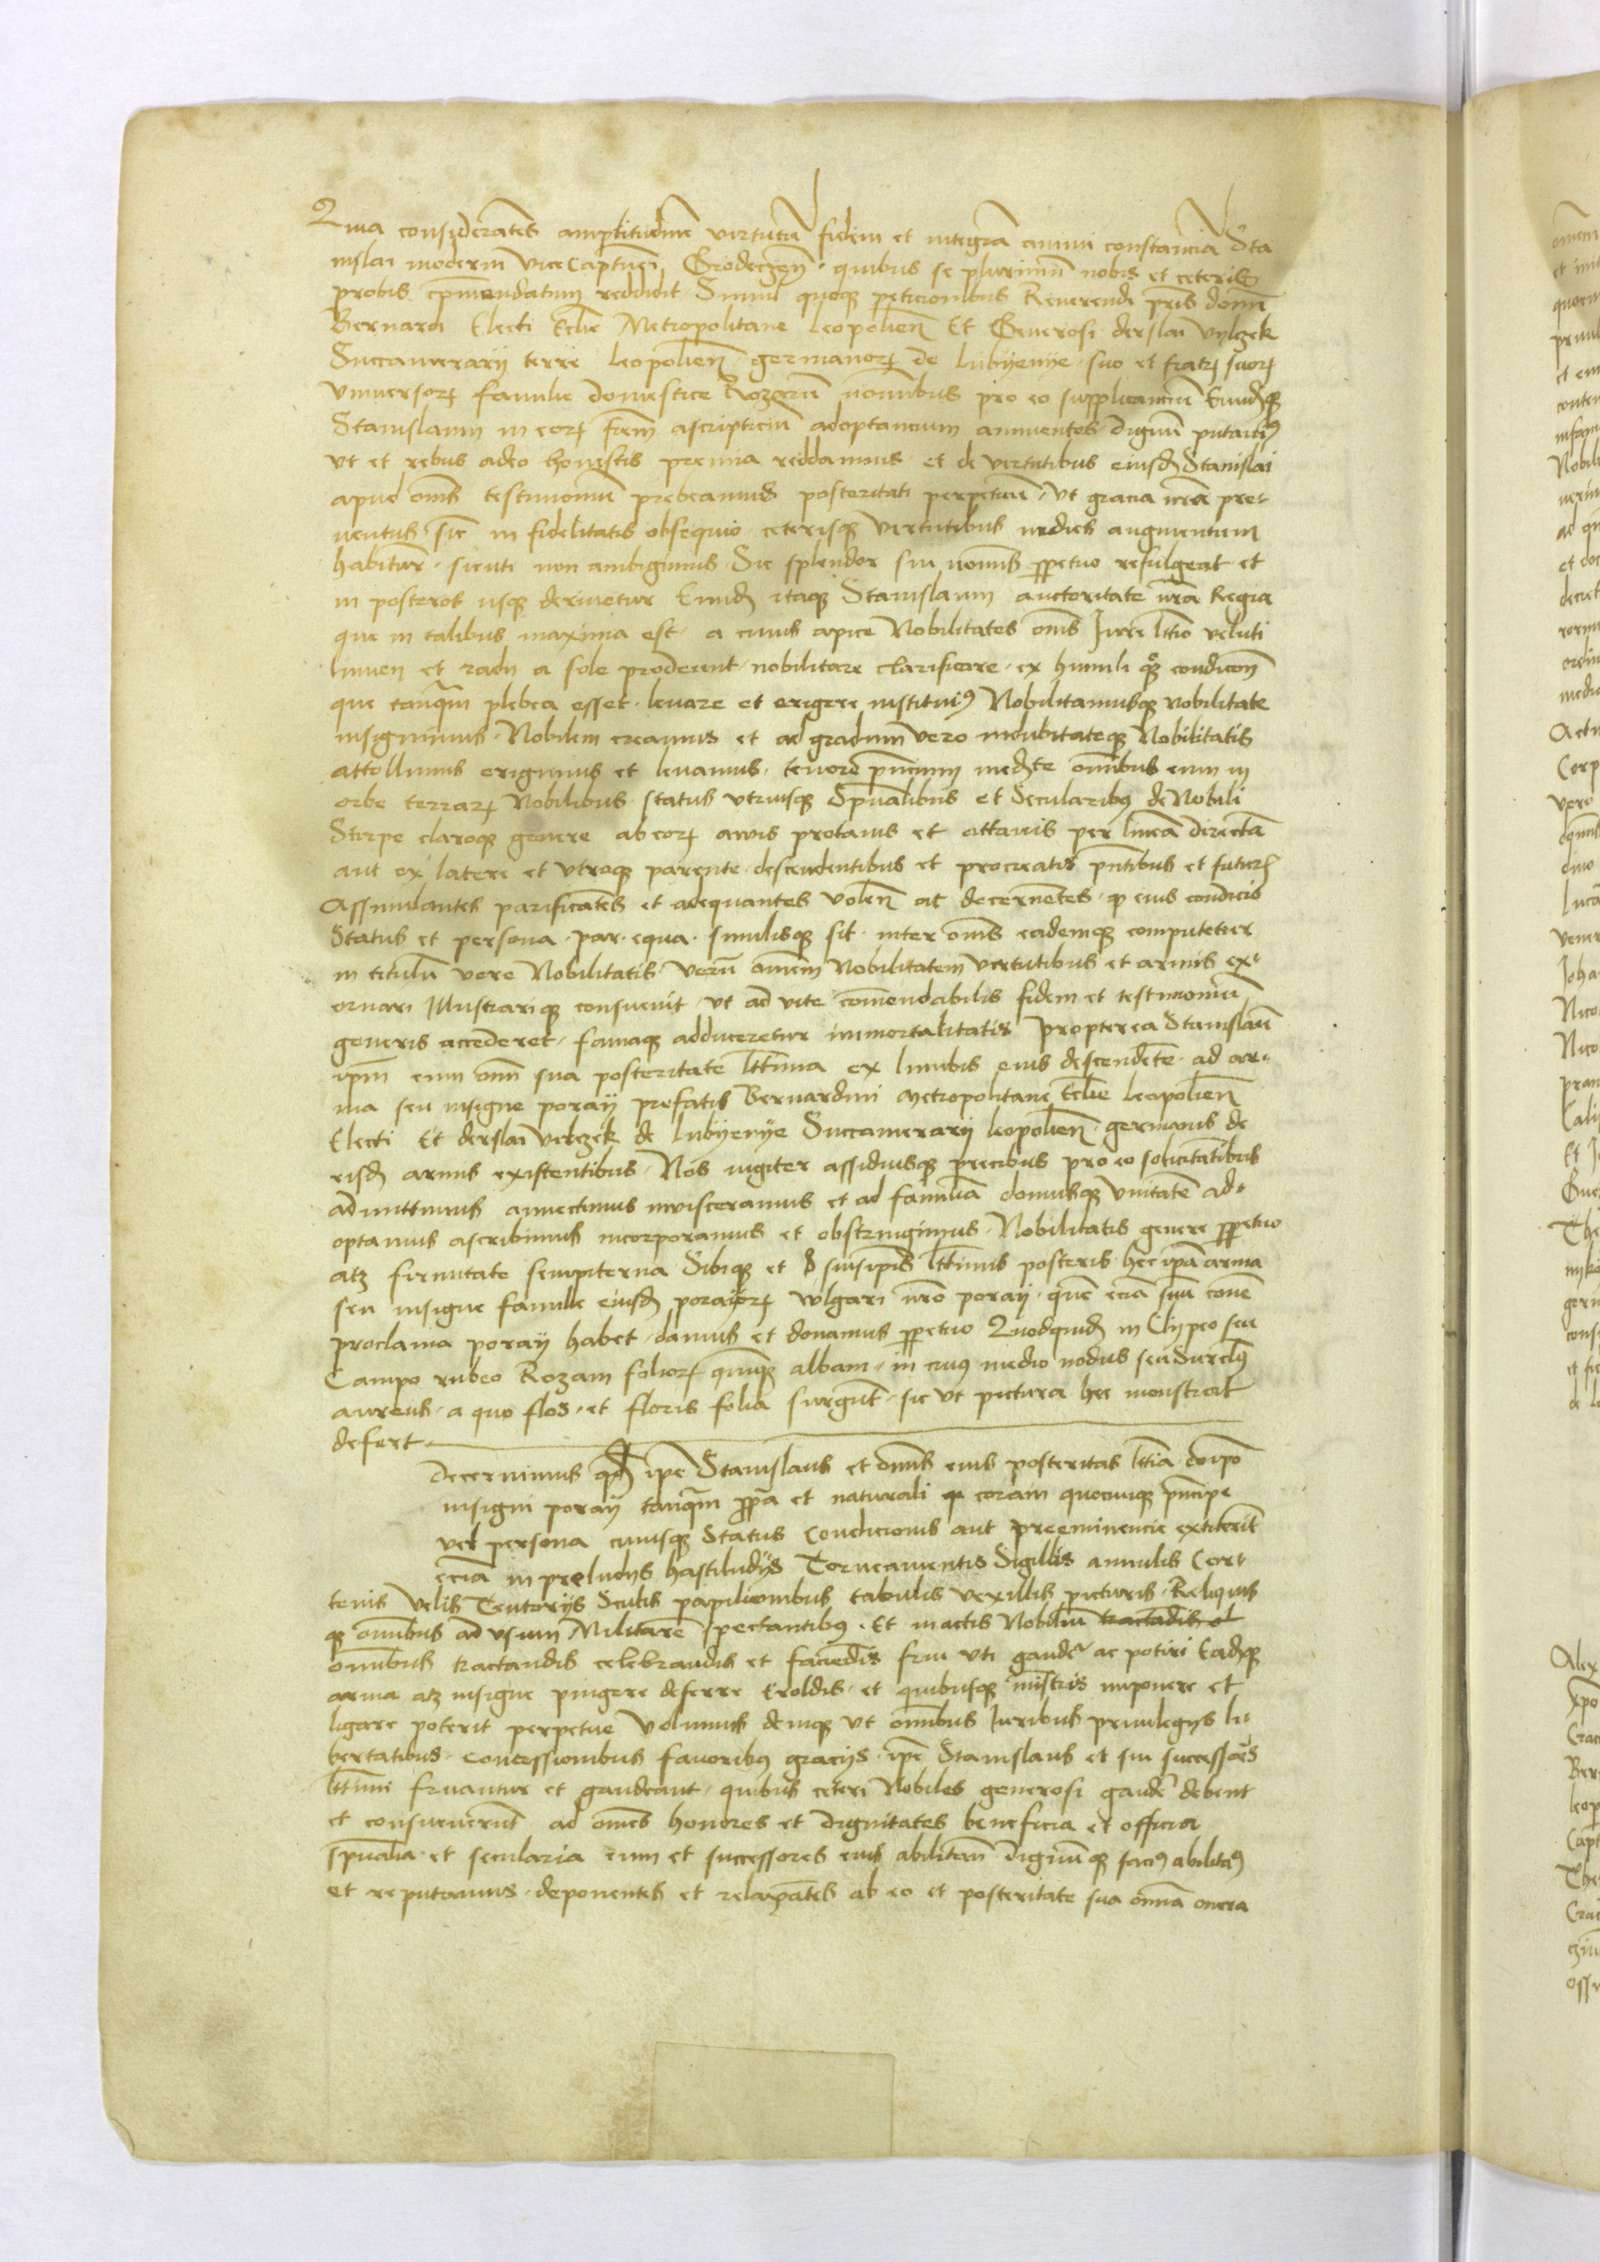 Qua considerates amplitudine virtutu fidem et integra animi constancia Sta
nislai moderni viceCaptnei Grodeczen quibus se plurimu nobis et ceteris
probis comendatum reddidit Simul quoque peticionibus Reverendi pris domi
Bernardi Electi Eclie Metropolitane leopolien Et Generosi derslai Vylczek
Succamerarij terre leopolien germanor de lubyenye suo et fratr suor
vniversor familie domestice Rozarum nominibus pro eo supplicanciu Eundq
Stanislaum in eor frem ascripticiu adoptancium annuentes dignu putavi9
vt et rebus adeo honestis premia reddamus et de virtutibus eiusd Stanislai
apud oms testimoniu prebeamus posteritati perpetuu vt gracia nra pre-
ventus sic in fidelitatis obsequio ceterisq virtutibus indies augmentum
habitur sicuti non ambigimus Sic splendor sui nois ppetuo refulgeat et
in posteros usq derivetur Eund itaq Stanislaum auctoritate nra Regia
que in talibus maxima est a cuius apice Nobilitates oms Jure ltimo veluti
lumen et radii a sole prodeunt nobilitare clarificare ex humili condicione
que tanqm plebea esset levare et erigere instituim9 Nobilitamusq Nobilitate
insignimus Nobilem creamus et ad gradum vero indubitateq Nobilitatis
attollimus erigimus et levamus tenore pncium mediante omnibus eum in
orbe terrar Nobilibus status vtriusq Spualibus et Secularibus de Nobili
Stirpe claroq genere ab eor avis protavis et attavis per linea directa
aut ex latere et vtroq parente descendentibus et procreatis pntibus et futuris
Assimilantes parificates et adequantes volen ac decernetes q eius condicio
Status et persona par equa similisq sit inter oms eademq computetur
in titulu vere Nobilitatis Veru omem Nobilitatem virtutibus et armis ex-
ornari Illustrariq consuevit vt ad vite comendabilis fidem et testimoniu
generis accederet famaq adduceretur immortalitatis Propterea Stanislau
ipm cum omi sua posteritate lttima ex lumbis eius descendete ad ar-
ma seu insigne poraij prefatis Bernardini Metropolitane Eclie leopolien
Electi Et derslai Velczek de lubyenye Succamerarij leopolien germanis de
eisd armis existentibus Nos iugiter assiduisq precibus pro eo solicitatibus
admittimus annectimus invisceramus et ad familia domusq vnitate ad-
optamus ascribimus incorporamus et obstringimus Nobilitatis genere ppetuo
atz firmitate sempiterna Sibiq et suisipis lttimis posteris hec ipa arma
seu insigne familie eiusd porajor vlgari nro poraij que ecia suu comue
proclama poraij habet damus et donamus ppetuo Quodquid in Clypeo seu
Campo rubeo Rozam folior quinq albam in cui9 medio nodus seu Surcul9
aureus a quo flos et floris folia surgut sic vt pictura hec monstrat
defert
Decernimus qd ipe Stanislaus et omis eius posteritas lttima de ipo
insigni poraij tanqm ppa et naturali coram quocunq pncipe
vel persona cuiusq Status Condicionis aut preeminencie extiterit
ecia in preludijs hastiludijs Torneamentis Sigillis annulis Cor-
tenis Velis Tentorijs Scutis papilionibus tabulis vexillis picturis Reliquis
q omibus ad vsum Militare spectantibus Et in actis Nobiliu tractadis et
omibus tractandis celebrandis et faciedis frui vti gaudere ac potiri Eadq
arma atz insigne pingere deferre Eroldis et quibusq ministris imponere et
ligare poterit perpetue volumus deniq vt omibus Juribus privilegijs li-
bertatibus concessionibus favoribus gracijs ipe Stanislaus et sui successores
lttimi fruantur et gaudeant quibus ceteri Nobiles generosi gaude debent
et consueverut ad omes honores et dignitates beneficia et officia
spualia et secularia eum et successores eius abilitan dignu q facim9 abilitam9
et reputamus deponentes et relaxates ab eo et posteritate sua omia onera